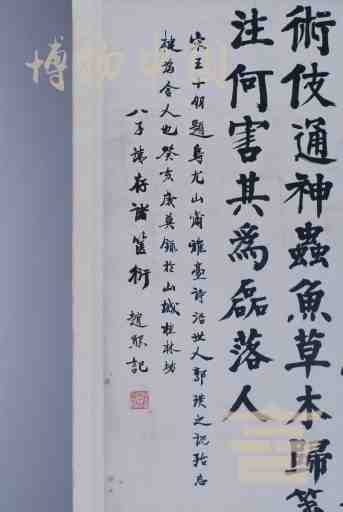 術伎通神蟲魚草木歸箋
注何害其爲磊落人
宋王十朋題烏尤山爾雅臺詩沿世人郭璞之説殆忘
犍爲舍人也癸亥歲莫録於山城桂林坊
八子湍存諸篋衍
趙熙記
博物中国